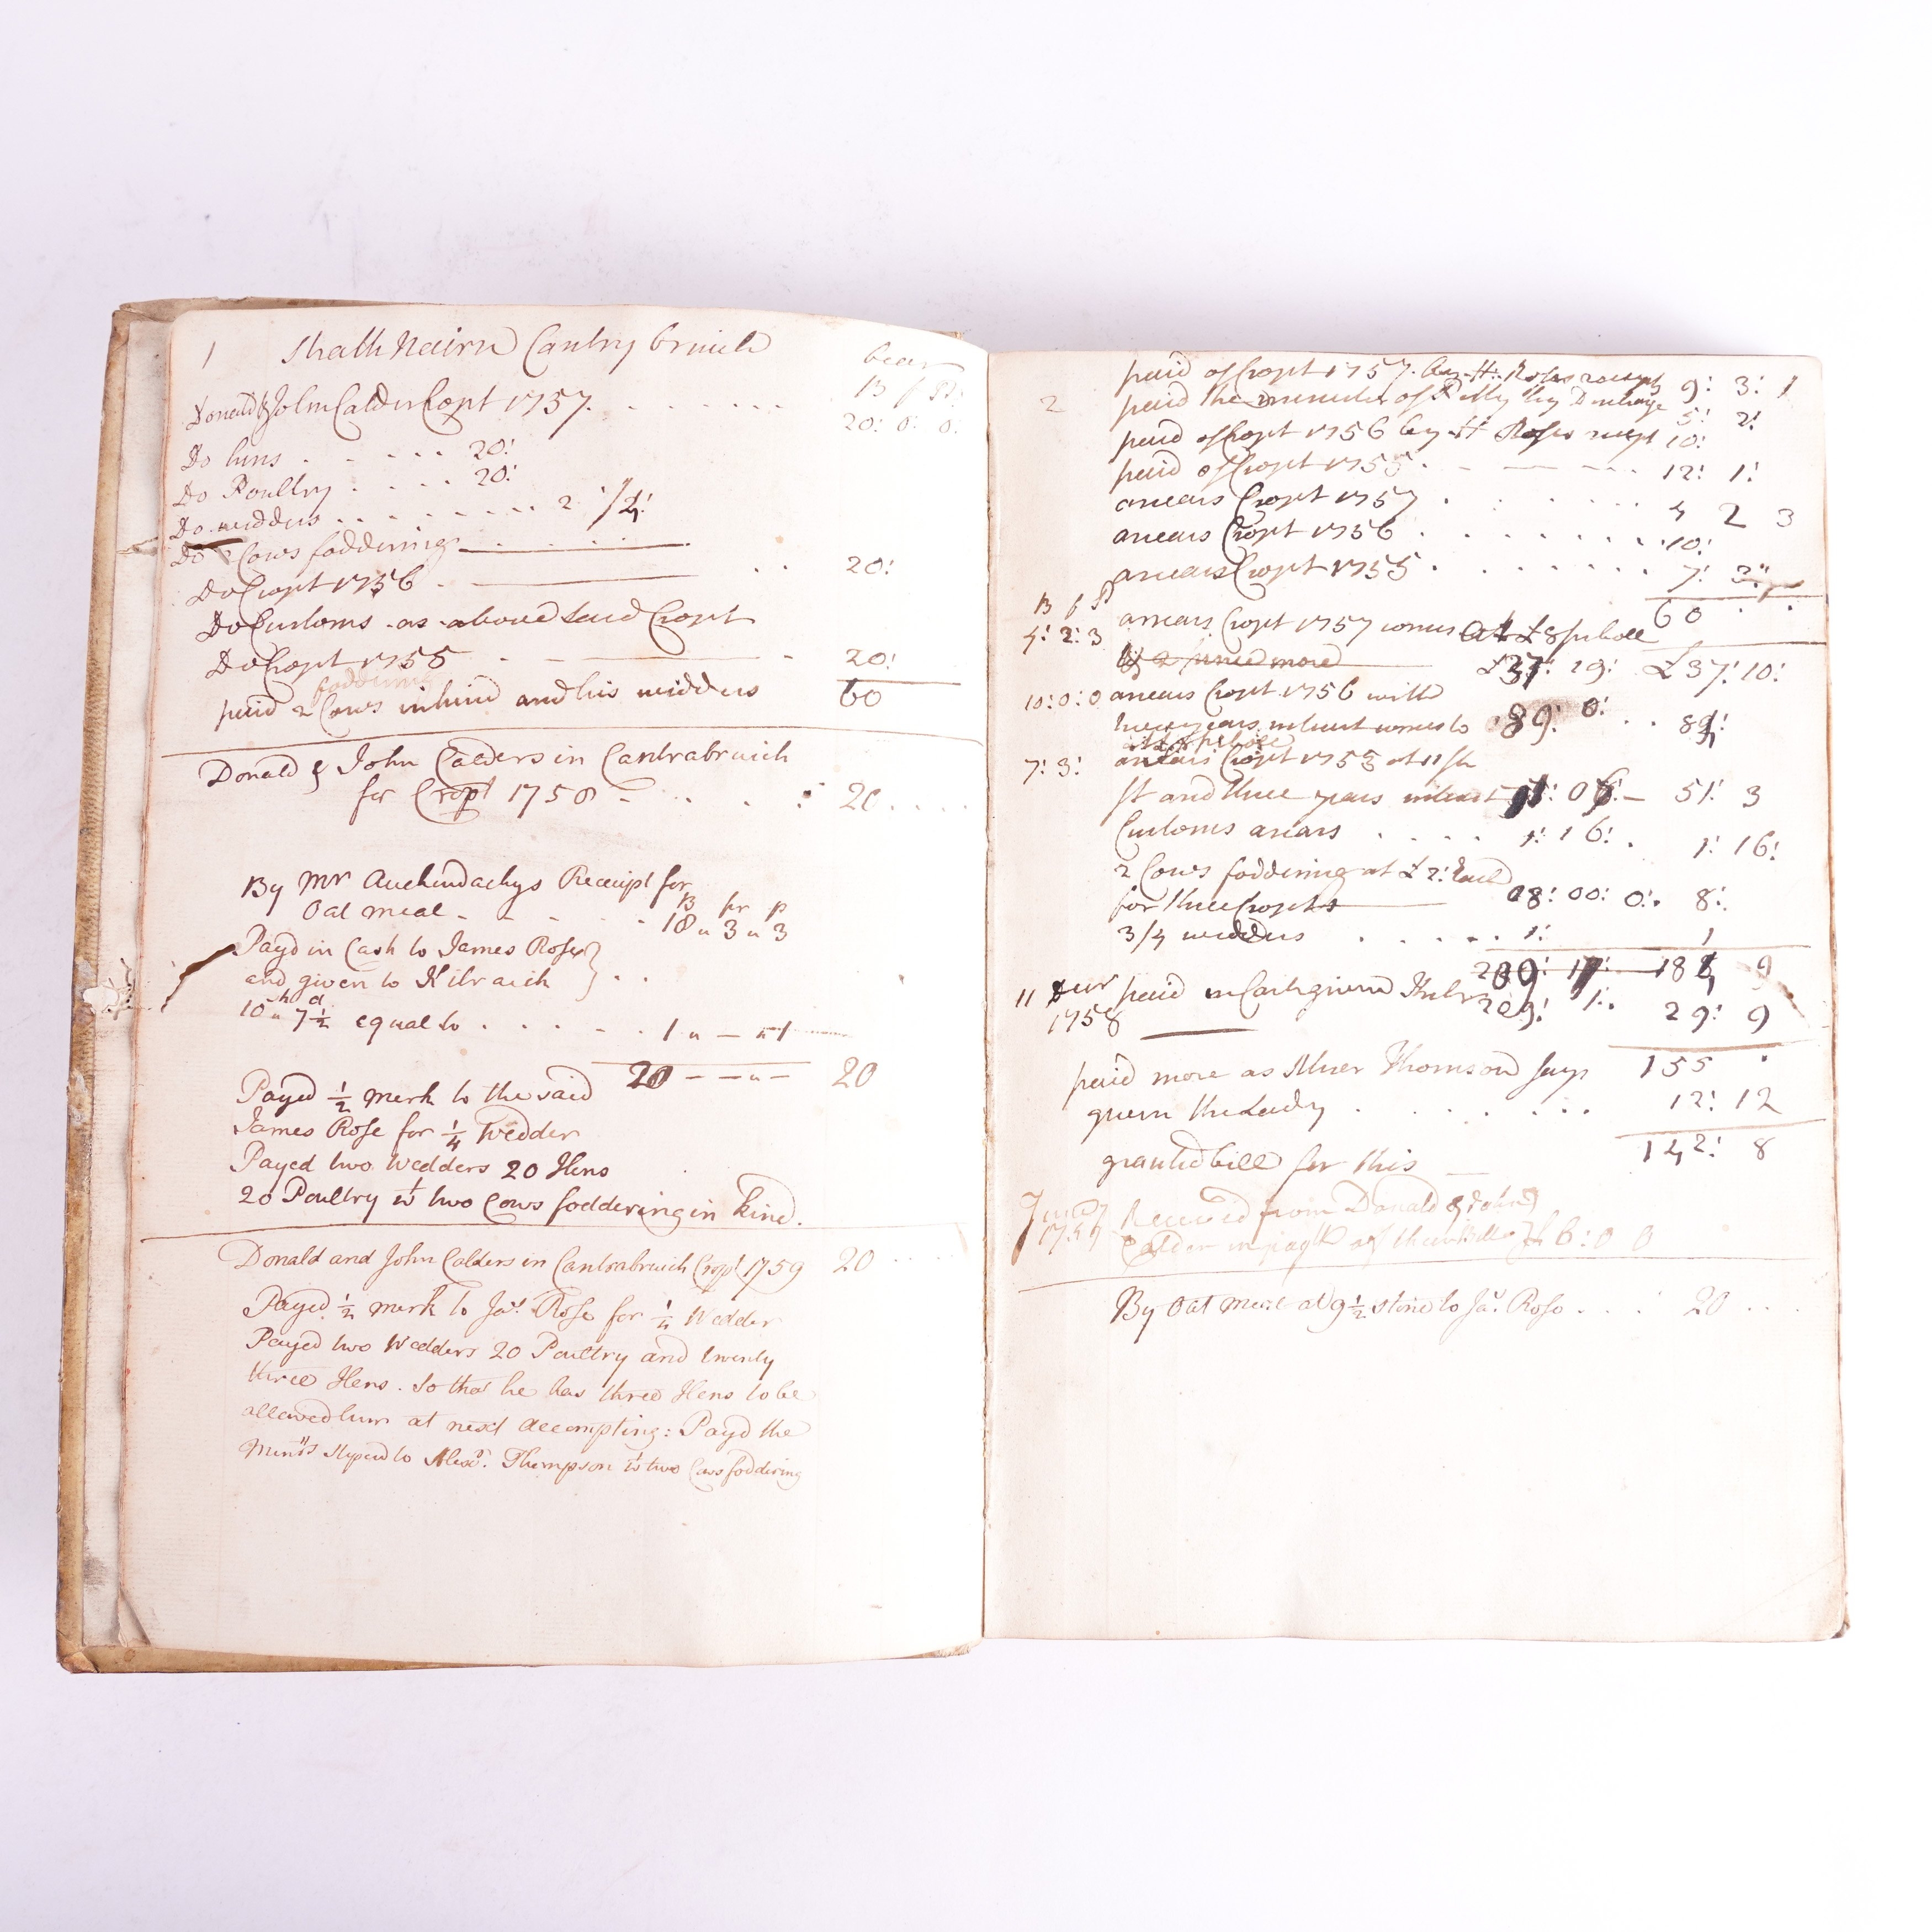 1 Strath Nairn Cantrybruich
bear
B f P
Donald & John Calder Cropt 1757 . . . . . . 20: 0: 0:
Do hens . . . . . 20:
Do Poultry . . . . 20:
Do widders . . . . . . . . 2 1/4:
Do 2 Cows foddering
Do Cropt 1756 . . . 20:
Do Customs as above said Cropt
Do Cropt 1755 - - 20:
foddering
paid 2 Cows in kind and his widders 60
Donald & John Calders in Cantrabruich
for Cropt 1758 - . . . : 20 . . . .
By Mr Auchindachys Receipt for
B fr p
Oat meal - - - - - 18 " 3 " 3
Payd in Cash to James Rose
and given to Kilraick } . .
10 sh " 7 1/2 d equal to . . . . . 1 " — " 1
20 — — " — 20
Payed 1/2 merk to the said
James Rose for 1/4 Wedder
Payed two Wedders 20 Hens
20 Poultry wt two Cows foddering in kind.
Donald and John Calders in Cantrabruich Cropt 1759 20 . . .
Payed 1/2 merk to Jas. Rose for 1/4 Wedder
Payed two Wedders 20 Poultry and twenty
three Hens. So that he has three Hens to be
allowed him at next Accompting: Payd the
Minrs Stipend to Alexr. Thompson wt two Cows foddering
2
paid of Cropt 1757 by H: Roses receipt 9: 3: 1
paid the minister of by Discharge 5: 2:
paid of Cropt 1756 by H Roses recept 10:
paid of Cropt 1755 . - — - . . 12: 1:
arrears Cropt 1757 . . . . . . 4 2 3
arrears Cropt 1756 . . . . . . . 10:
arrears Cropt 1755 . . . . . . . 7: 3:
60 . .
B f P
4: 2: 3 arrears Cropt 1757 comes at £8 p boll
£37: 19: £37: 10:
10: 0: 0 arrears Cropt 1756 with
two years interest comes to 89: 0: . . 89:
7: 3: arrears Cropt 1755 at 11 sh
st and three years interest 51: 06: — 51: 3
Customs arears . . . . 1: 16: . 1: 16:
2 Cows foddering at £2: Each
for three Cropts 08: 00: 0: . 8:
3/4 widders . . . . . 1: 1
209: 17: 184 9
11 1758 paid in Cash given 29: 1: 29: 9
paid more as Alxer Thomson says 155 .
given the Lady . . . . . . 12: 12
granted bill for this — 142: 8
1759 Received from Donald & John
Calder in paytt of their Bill £6: 0 0
By Oat Meal at 9 1/2 stone to Jas. Rose . . . : 20 . . .